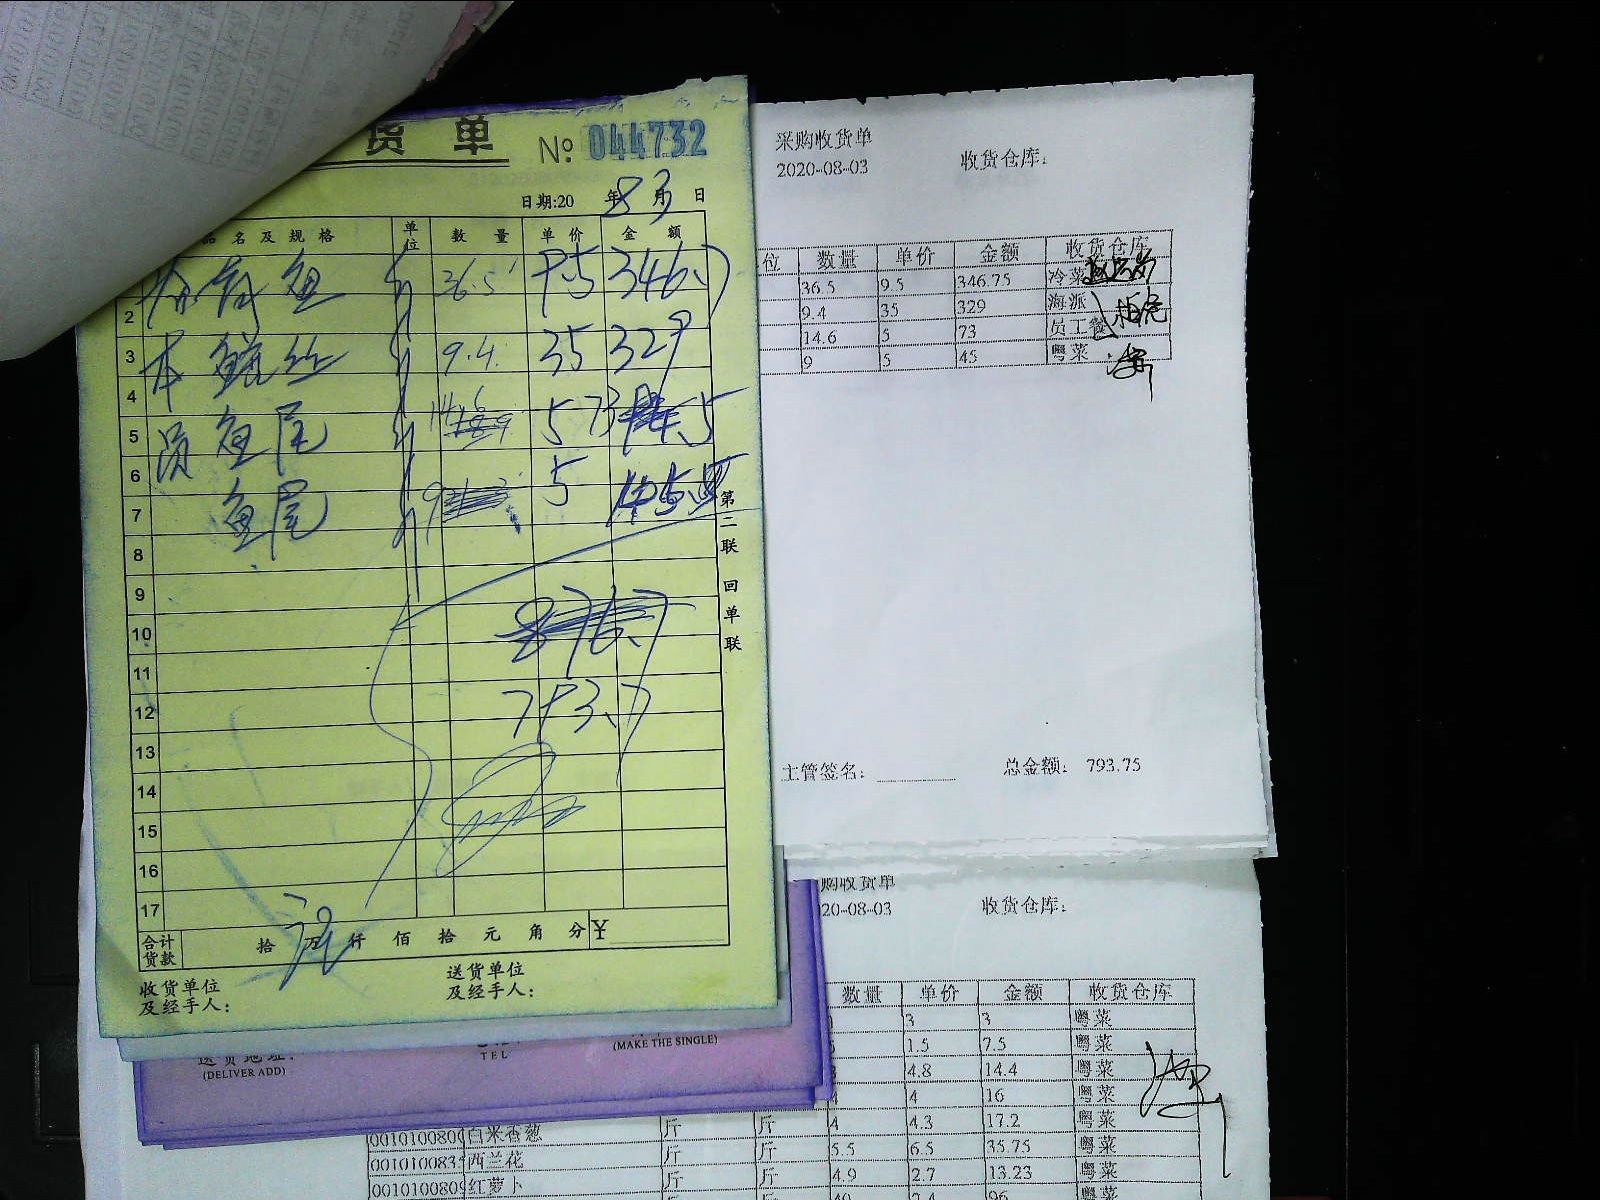 货 单 № 044732
日期:20 年 8 月 3 日
品 名 及 规 格 单位 数 量 单 价 金 额
青鱼 斤 36.5 9.5 346.7
2
3 本 鳝丝 斤 9.4 35 329
4
5 员 鱼尾 斤 14.6 5 73
6
7 鱼尾 斤 9 5 45
8
9
10
11
12 793.7
13
14
15
16
17
合计货款 拾 万 仟 佰 拾 元 角 分 ¥
收货单位及经手人:
送货单位及经手人:
第二联 回单联
送货地址:
(DELIVER ADD)
TEL
(MAKE THE SINGLE)
采购收货单
2020-08-03 收货仓库:
位 数量 单价 金额 收货仓库
36.5 9.5 346.75 冷菜
9.4 35 329 海派
14.6 5 73 员工餐
9 5 45 粤菜
主管签名: 总金额: 793.75
购收货单
20-08-03 收货仓库:
数量 单价 金额 收货仓库
3 3 粤菜
1.5 7.5 粤菜
4.8 14.4 粤菜
4 4 16 粤菜
白米香葱 斤 斤 4 4.3 17.2 粤菜
西兰花 斤 斤 5.5 6.5 35.75 粤菜
红萝卜 斤 斤 4.9 2.7 13.23 粤菜
40 2.4 96 粤菜